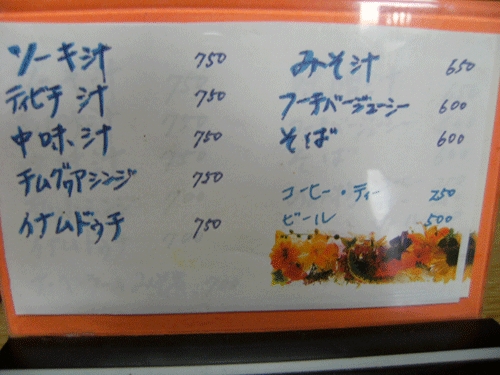 ソーキ汁 750
ティビチ 汁 750
中味汁 750
チムグヮアシンジ 750
イナムドゥチ 750
みそ汁 650
フーチバージューシー 600
そば 600
コーヒー・ティー 250
ビール 500